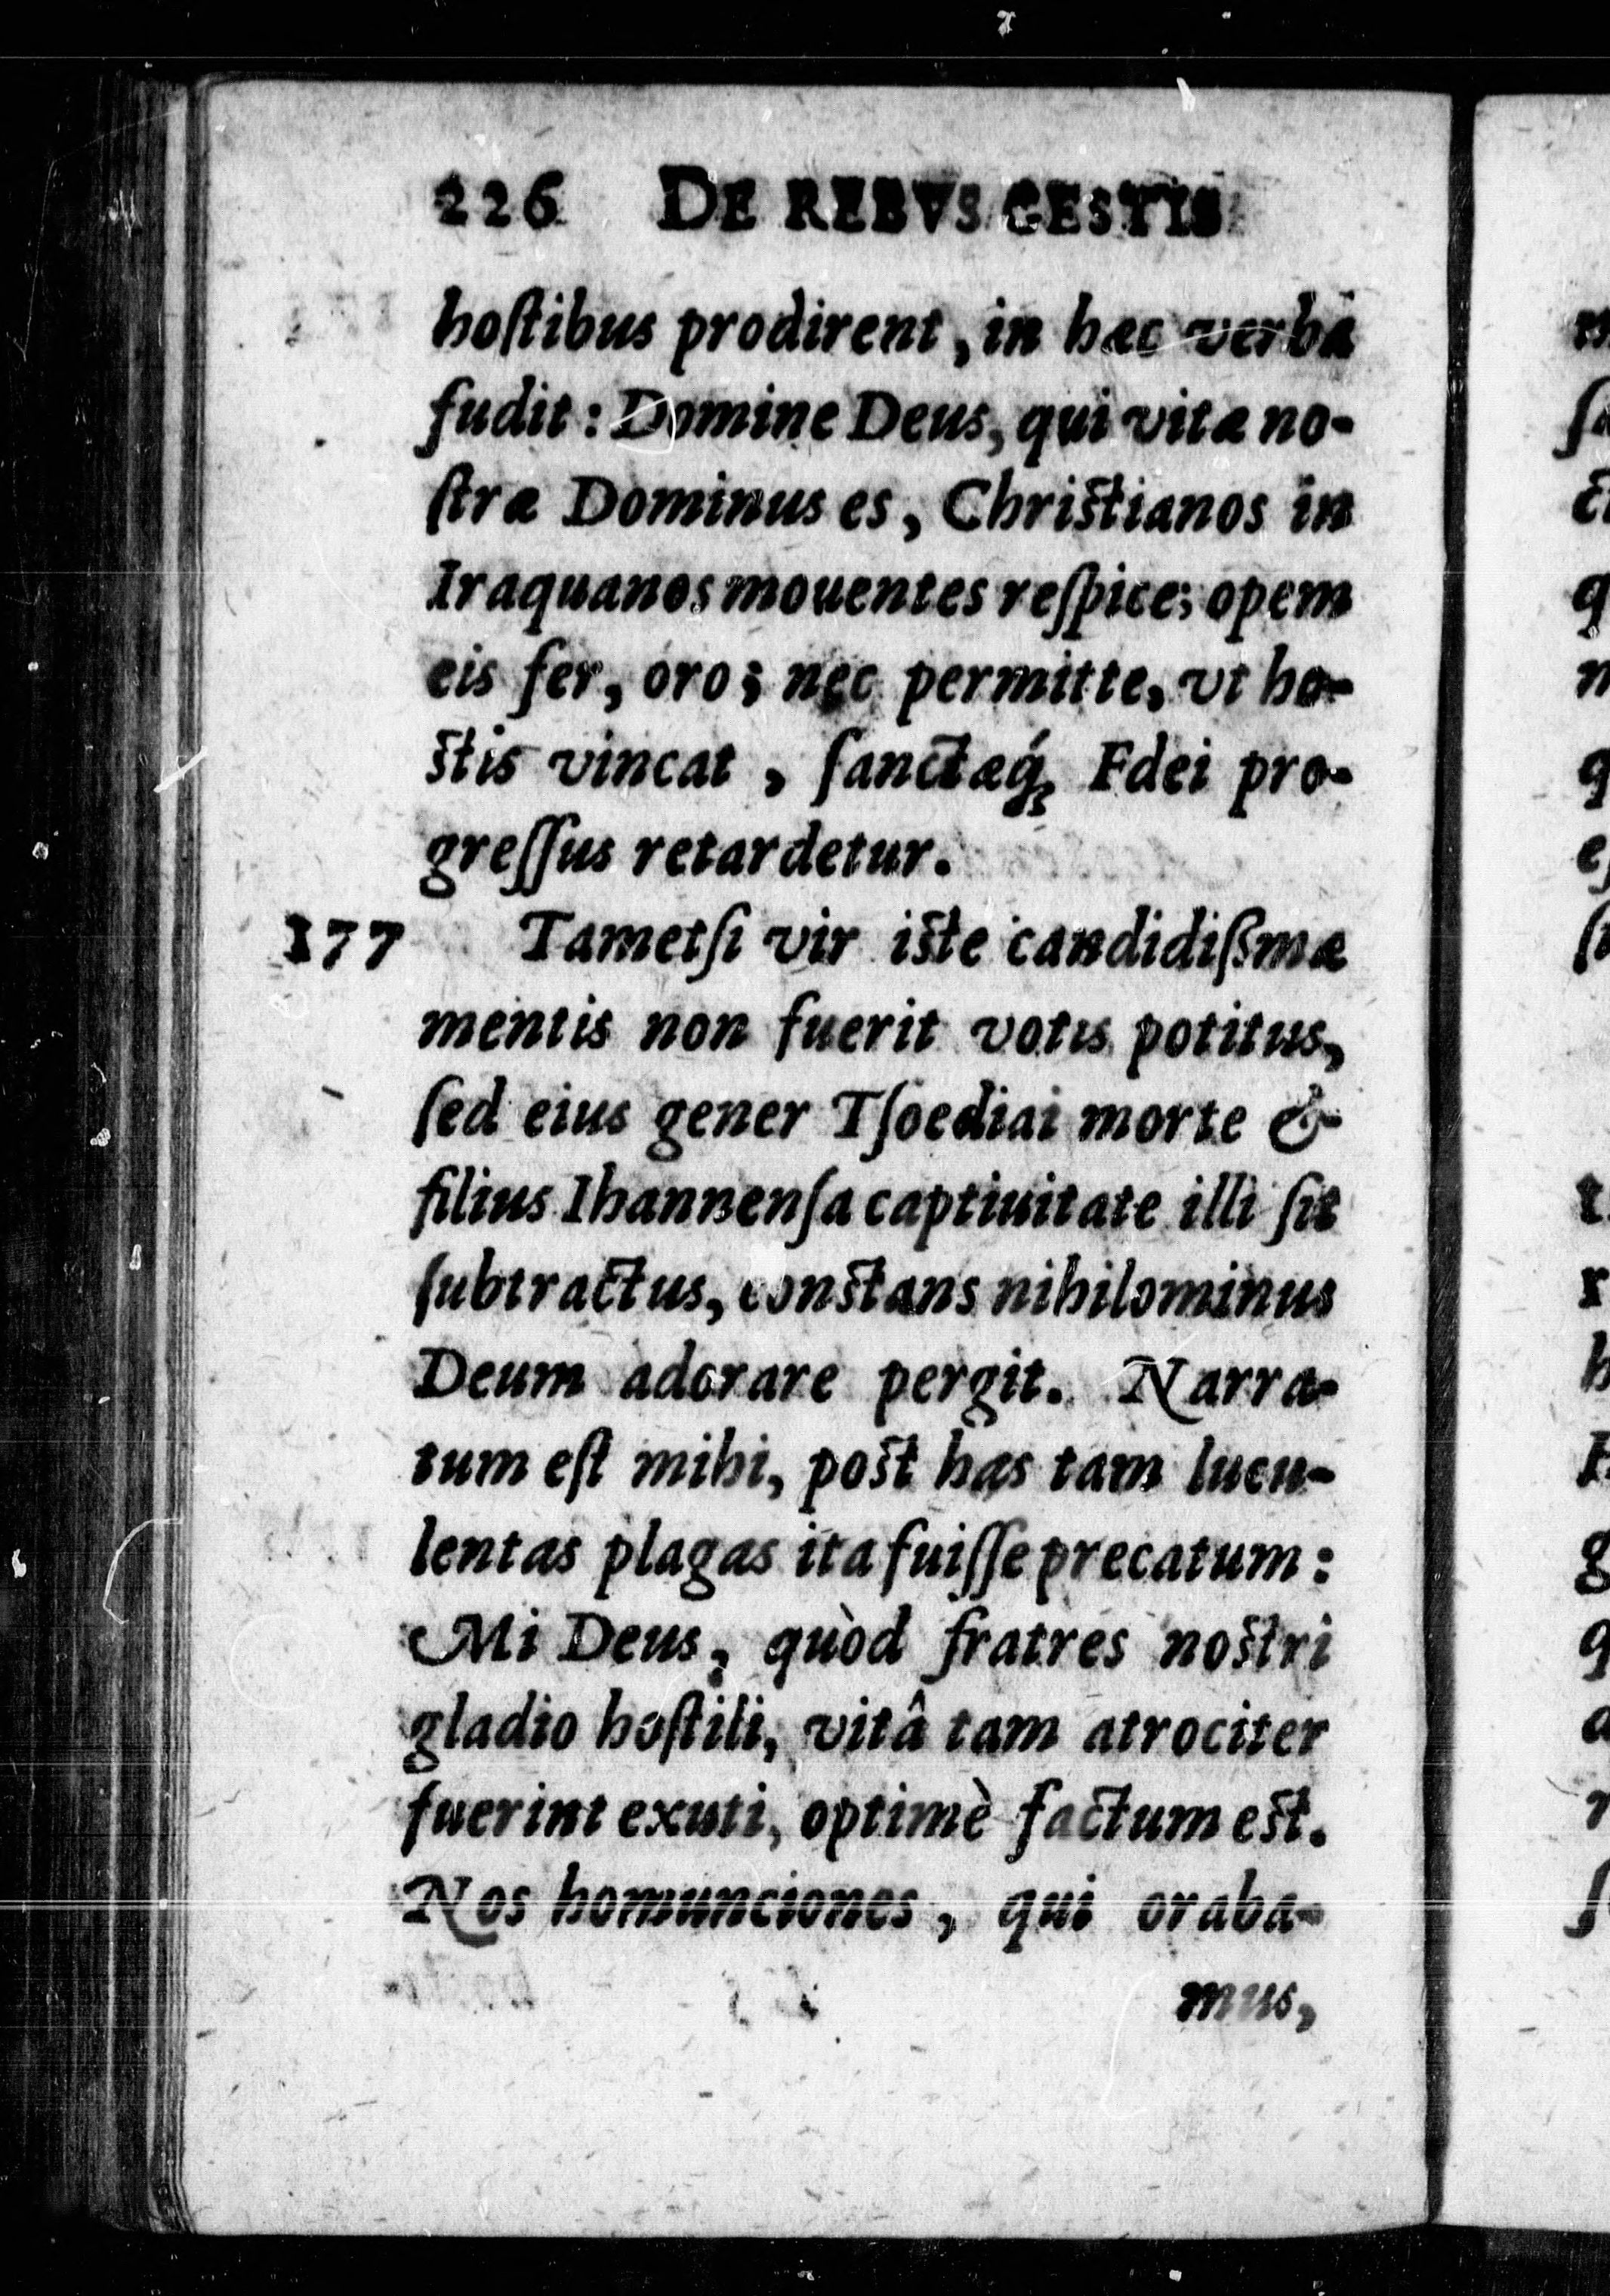 226 DE REBVS GESTIS
hoſtibus prodirent, in hæc verba
fudit: Domine Deus, qui vitæ no-
ſtræ Dominus es, Chriſtianos in
Iraquanos mouentes reſpice; opem
eis fer, oro; nec permitte, vt ho-
ſtis vincat, ſanctæq́; Fdei pro-
greſſus retardetur.
177 Tametſi vir iſte candidiſsmæ
mentis non fuerit votis potitus,
ſed eius gener Tſoediai morte &
filius Ihannenſa captiuitate illi ſit
ſubtractus, conſtans nihilominus
Deum adorare pergit. Narra-
tum eſt mihi, poſt has tam lucu-
lentas plagas ita fuiſſe precatum:
Mi Deus, quòd fratres noſtri
gladio hoſtili, vitâ tam atrociter
fuerint exuti, optimè factum eſt.
Nos homunciones, qui oraba-
mus,